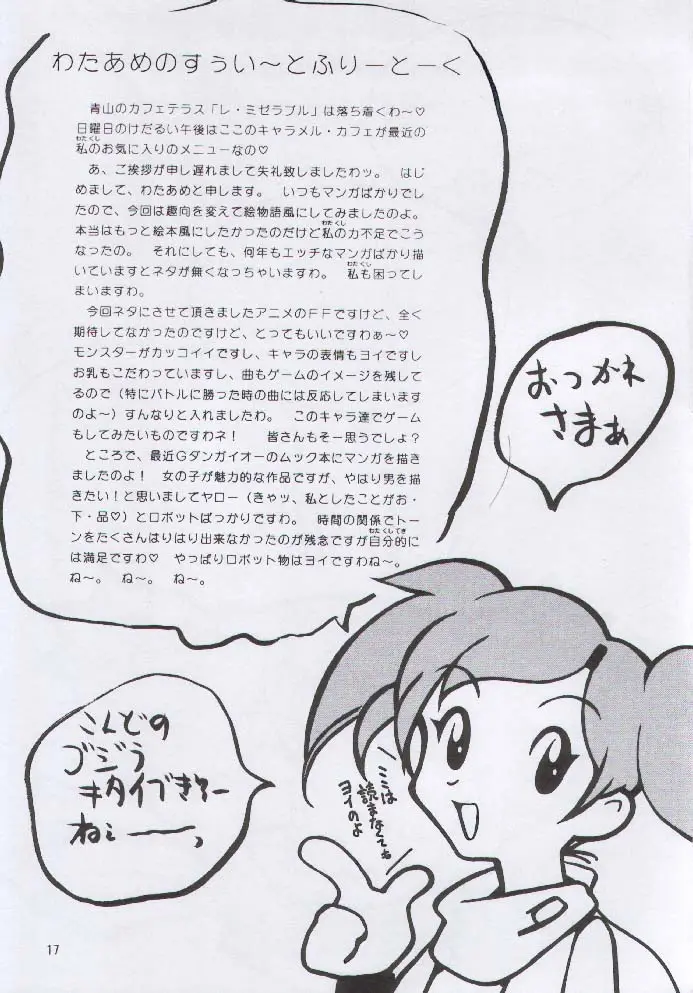 わたあめのすぅい～とふりーとーく
青山のカフェテラス「レ・ミゼラブル」は落ち着くわ～♡
日曜日のけだるい午後はここのキャラメル・カフェが最近の
わたくし
私のお気に入りのメニューなの♡
あ、ご挨拶が申し遅れまして失礼致しましたわッ。　はじ
めまして、わたあめと申します。　いつもマンガばかりでし
たので、今回は趣向を変えて絵物語風にしてみましたのよ。
わたくし
本当はもっと絵本風にしたかったのだけど私の力不足でこう
なったの。　それにしても、何年もエッチなマンガばかり描
わたくし
いていますとネタが無くなっちゃいますわ。　私も困ってし
まいますわ。
今回ネタにさせて頂きましたアニメのＦＦですけど、全く
期待してなかったのですけど、とってもいいですわぁ～♡
モンスターがカッコイイですし、キャラの表情もヨイですし
お乳もこだわっていますし、曲もゲームのイメージを残して
るので（特にバトルに勝った時の曲には反応してしまいます
のよ～）すんなりと入れましたわ。　このキャラ達でゲーム
もしてみたいものですわネ！　皆さんもそー思うでしょ？
ところで、最近Ｇダンガイオーのムック本にマンガを描き
ましたのよ！　女の子が魅力的な作品ですが、やはり男を描
きたい！と思いましてヤロー（きゃッ、私としたことがお・
下・品♡）とロボットばっかりですわ。　時間の関係でトー
わたくしてき
ンをたくさんはりはり出来なかったのが残念ですが自分的に
は満足ですわ♡　やっぱりロボット物はヨイですわね～。
ね～。　ね～。　ね～。
おつかれ
さまぁ
こんどの
ゴジラ
キタイできるー
ねぇーーっ
ここは
読まなくても
ヨイのよ
17